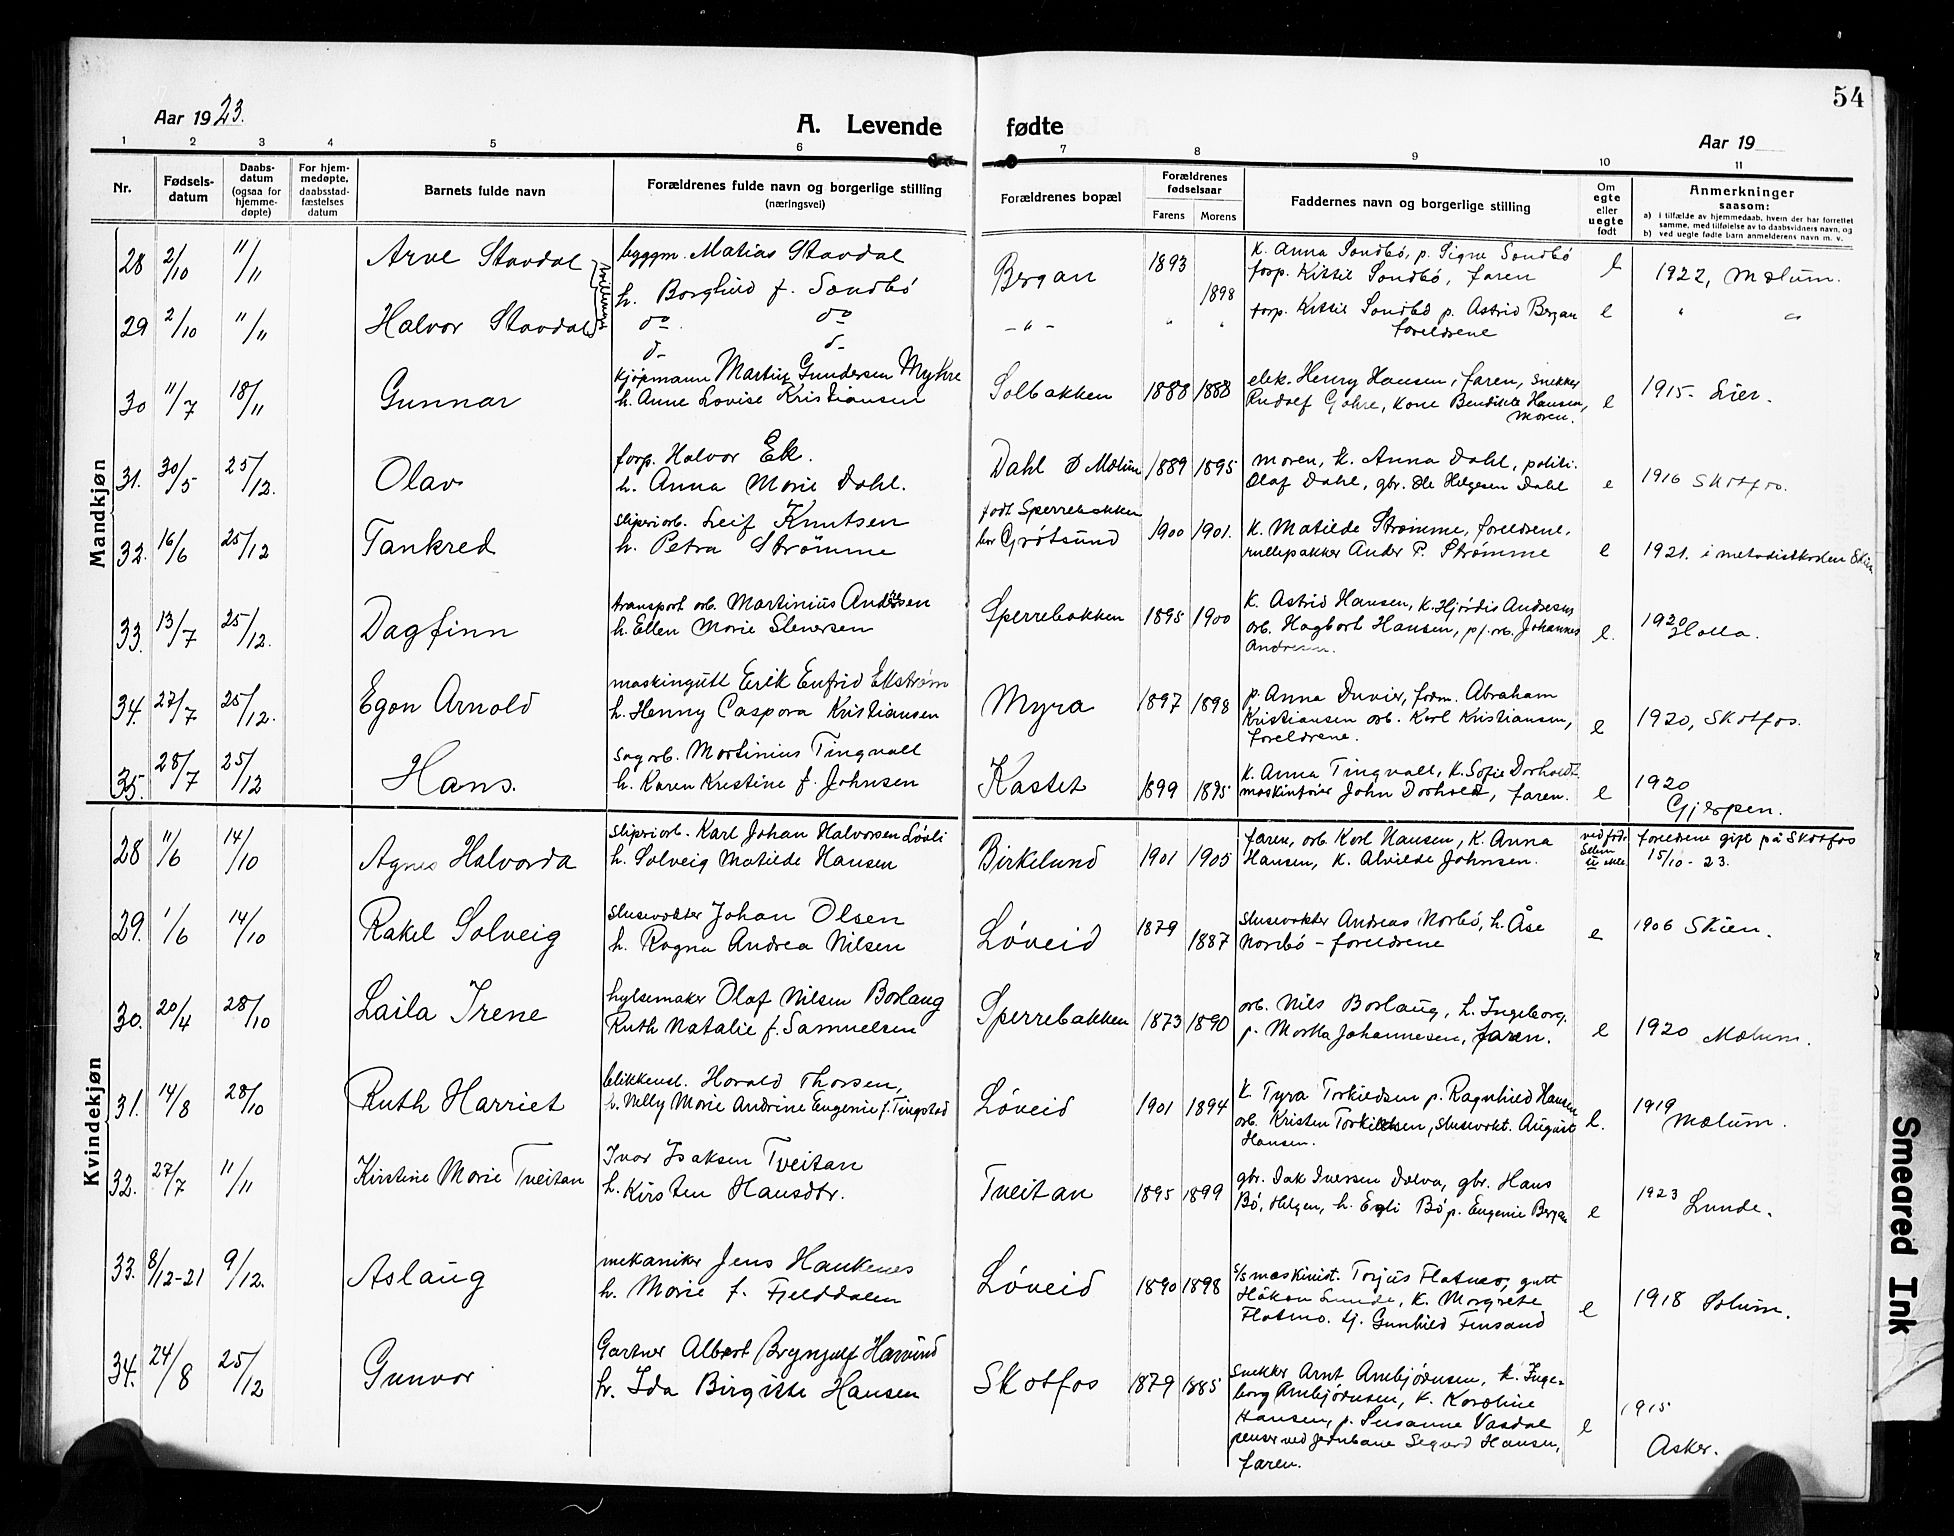 54
Aar 1923.
A. Levende fødte
Aar 19
1 2 3 4 5 6 7 8 9 10 11
Nr.
Fødsels-
datum
Daabs-
datum
(ogsaa for
hjemme-
døpte)
For hjem-
medøpte,
daabsstad-
fæstelses
datum
Barnets fulde navn
Forældrenes fulde navn og borgerlige stilling
(næringsvei)
Forældrenes bopæl
Forældrenes
fødselsaar
Farens Morens
Faddernes navn og borgerlige stilling
Om
egte
eller
uegte
født
Anmerkninger
saasom:
a) i tilfælde av hjemmedaab, hvem der har forrettet
samme, med tilføielse av to daabsvidners navn, og
b) ved uegte fødte barn anmelderens navn m. v.
Mandkjøn
28 2/10 11/11 Arve Stavdal
tvillinger
byggm. Matias Stavdal
h. Borghild f. Sandbö
Bergan 1893 1898
k. Anna Sondbö, p. Signe Sondbö
forp. Kittil Sondbö, faren
e 1922, Mælum.
29 2/10 11/11 Halvor Stavdal
do do
d- d-
- " - " "
forp. Kittil Sondbö p. Astrid Bergan
foreldrene
e " "
30 11/7 18/11 Gunnar
Kjøpmann Martin Gundersen Myhre
h. Anne Lovise Kristiansen
Solbakken 1888 1888
elek. Henry Hansen, faren, snekker
Rudolf Gohre, kone Bendikte Hansen,
moren.
e 1915 - Lier.
31. 30/5 25/12. Olav
forp. Halvor Ek.
h. Anna Marie Dahl.
Dahl Ø Mælum 1889 1895
moren, k. Anna Dahl, politi.
Olaf Dahl, gbr. Ole Helgesen Dahl
e 1916 Skotfos.
32. 16/6 25/12 Tankred
sliperiarb. Leif Knutsen
h. Petra Strömme
født Sperrebakken
bor Grötsund 1900 1901.
k. Matilde Strömme, foreldrene,
rullepakker Ander P. Strømme
e 1921. i metodistkirken Skien
33. 13/7 25/12. Dagfinn
transport arb. Martinius Andersen
h. Ellen Marie Stenersen
Sperrebakken 1895 1900
k. Astrid Hansen, k. Hjördis Andresen
arb. Hagbart Hansen, pj. arb. Johannes
Andresen.
e. 1920 Holla.
34. 27/7 25/12. Egon Arnold
maskingutt Erik Enfrid Ekström
h. Henny Caspara Kristiansen
Myra 1897 1898
p. Anna Duvier, form. Abraham
Kristiansen arb. Karl Kristiansen,
foreldrene.
e 1920, Skotfos.
35. 28/7 25/12 Hans.
sagarb. Martinius Tingvall
h. Karen Kristine f. Johnsen
Kastet 1899 1895
k. Anna Tingvall, k. Sofie Dorholdt
maskinfører John Dorholdt, faren.
e 1920
Gjerpen.
Kvindekjøn
28 11/6 14/10 Agnes Halvorda
sliperiarb. Karl Johan Halvorsen Lösli
h. Solveig Matilde Hansen
Birkelund 1901 1905
faren, arb Karl Hansen, k. Anna
Hansen, k. Alvilde Johnsen.
ved føds
foreldrene gift på Skotfos
15/10 - 23.
29. 1/6 14/10 Rakel Solveig
slusevokter Johan Olsen
h. Ragna Andrea Nilsen
Löveid 1879 1887
slusevokter Andreas Norbö, h. Åse
Nordbö - foreldrene
e 1906 Skien.
30. 20/4 28/10 Laila Irene
hylsemaker Olaf Nilsen Borlaug
Ruth Natalie f. Samuelsen
Sperrebakken 1873 1890
arb. Nils Borlaug, h. Ingeborg.
p. Martha Johannesen, faren.
e 1920 Mælum.
31. 14/8 28/10 Ruth Harriet
blikkensl. Harald Thorsen,
h. Nelly Marie Andrine Eugenie f. Tingstad
Löveid 1901 1894
k. Tyra Torkildsen p. Ragnhild Hansen
arb. Kristen Torkildsen, slusevokt. August
Hansen.
e. 1919
Mælum.
32. 27/7 11/11 Kirstine Marie Tveitan
Ivar Isaksen Tveitan
h. Kirsten Hansdtr.
Tveitan 1895 1899
gbr. Isak Iversen Dolva, gbr. Hans
Bö, Helgen, h. Egli Bö p. Eugenie Bergan
e 1923 Lunde.
33. 8/12-21 9/12. Aslaug
mekaniker Jens Haukenes
h. Marie f. Fjelddalen
Löveid 1890 1898
s/s maskinist. Torjus Flatmo, gutt
Håkon Lunde, k. Margrete
Flatmo. tj. Gunhild Finsand
e 1918 Solum.
34. 24/8 25/12 Gunvor
Gartner Albert Brynjulf Harvind
h. Ida Birgitte Hansen
Skotfos 1879 1885
snekker Arnt Arnbjörnsen, k. Inge-
borg Arnbjörnsen, k. Karoline
Hansen, p. Susanne Vasdal
penser ved Jernbane Sigurd Hansen,
faren.
e 1915
Asker.
Smeared Ink